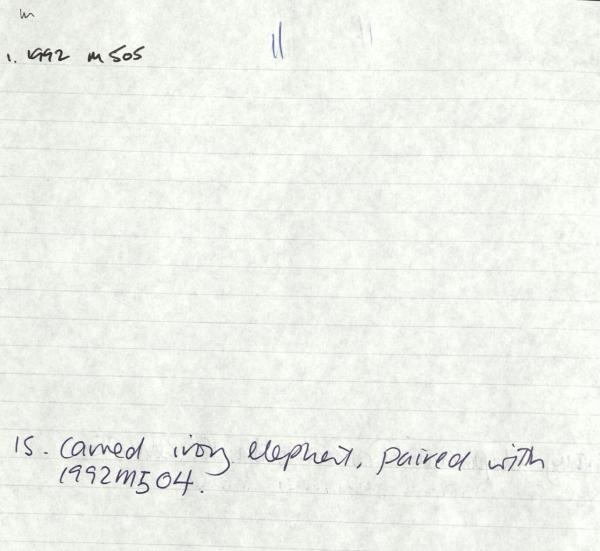 1. 1992 M505
15. Carved ivory elephant, paired with
1992M504.